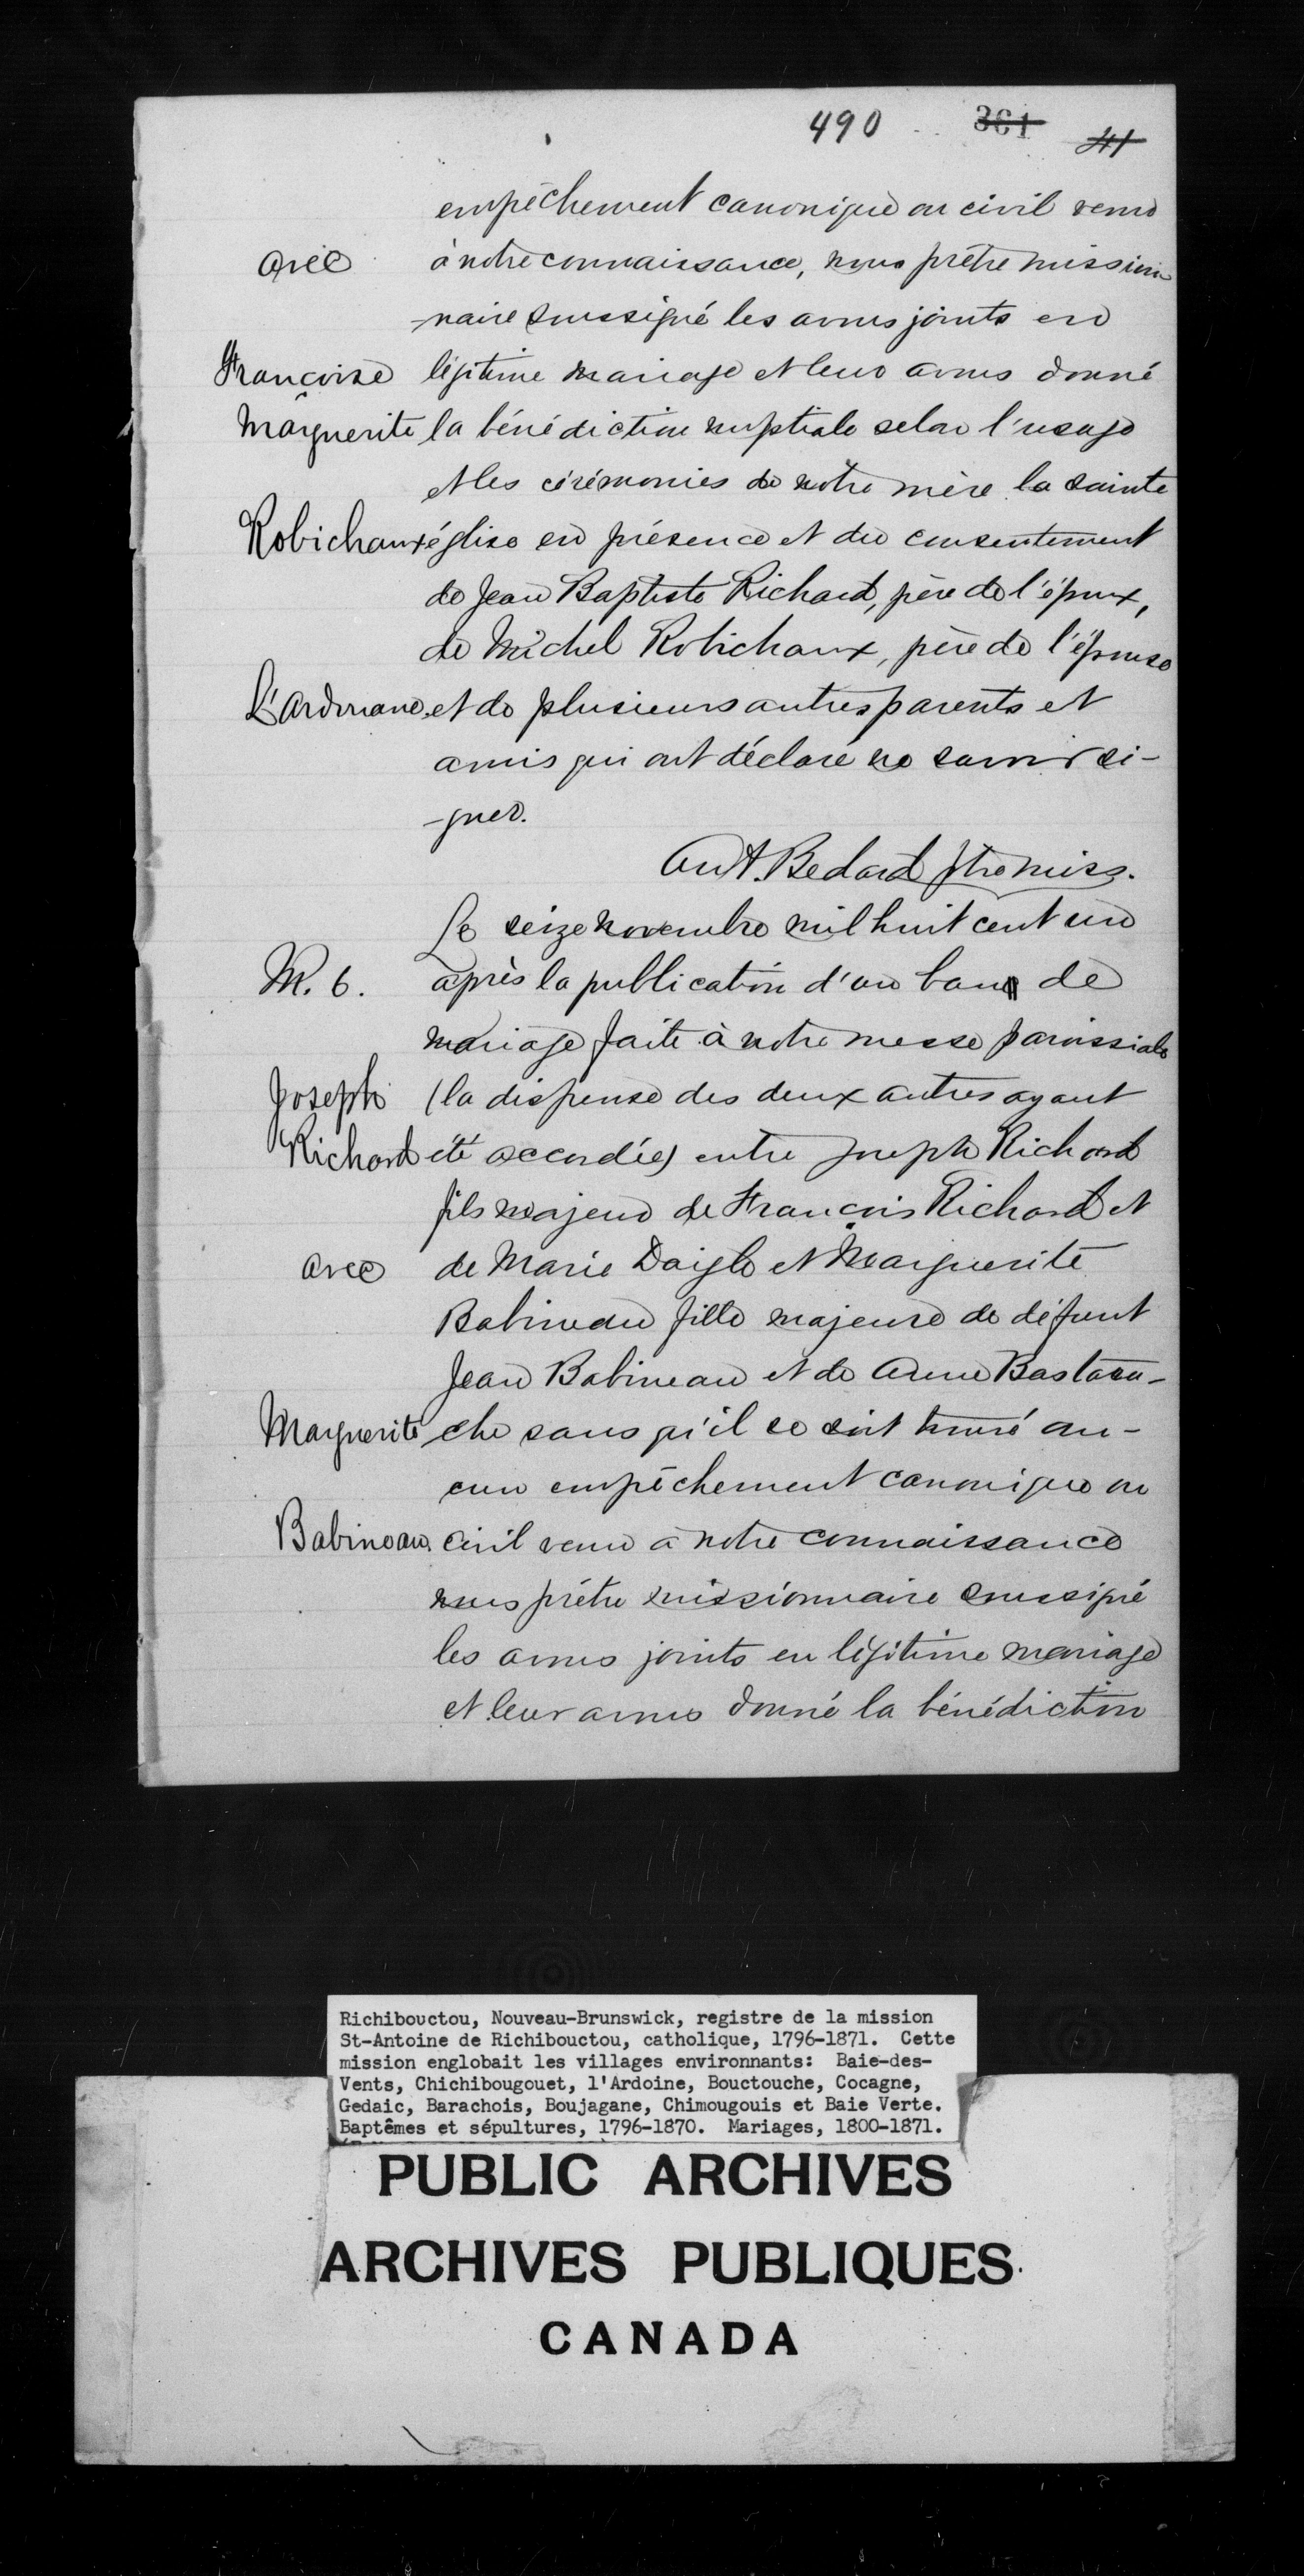 490 361 41
empêchement canonique ou civil venu
avec
à notre connaissance, nous prêtre mission
-naire soussigné les avons joints en
Françoise
légitime mariage et leur avons donné
Marguerite
la bénédiction nuptiale selon l'usage
et les cérémonies de notre mère la sainte
Robichaux
église en présence et du consentement
de Jean Baptiste Richard, père de l'époux,
de Michel Robichaux, père de l'épouse
L'Ardouane.
et de plusieurs autres parents et
amis qui ont déclaré ne savoir si-
-gner.
Ant. Bedard ptre miss.
Le seize novembre mil huit cent un
M. 6.
après la publication d'un ban de
mariage faite à notre messe paroissiale
Joseph
(la dispense des deux autres ayant
Richard
été accordée) entre Joseph Richard
fils majeur de François Richard et
avec
de Marie Daigle et Marguerite
Babineau fille majeure de défunt
Jean Babineau et de Anne Bastara-
Marguerite
che sans qu'il se soit trouvé au-
cun empêchement canonique ou
Babineau.
civil venu à notre connaissance
nous prêtre missionnaire soussigné
les avons joints en légitime mariage
et leur avons donné la bénédiction
Richibouctou, Nouveau-Brunswick, registre de la mission
St-Antoine de Richibouctou, catholique, 1796-1871. Cette
mission englobait les villages environnants: Baie-des-
Vents, Chichibougouet, l'Ardoine, Bouctouche, Cocagne,
Gedaic, Barachois, Boujagane, Chimougouis et Baie Verte.
Baptêmes et sépultures, 1796-1870. Mariages, 1800-1871.
PUBLIC ARCHIVES
ARCHIVES PUBLIQUES
CANADA